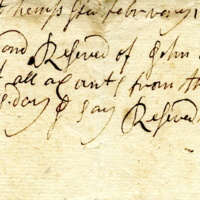 hempsted february 1
and Reseved of John
all acounts from th
s day I say Reseved